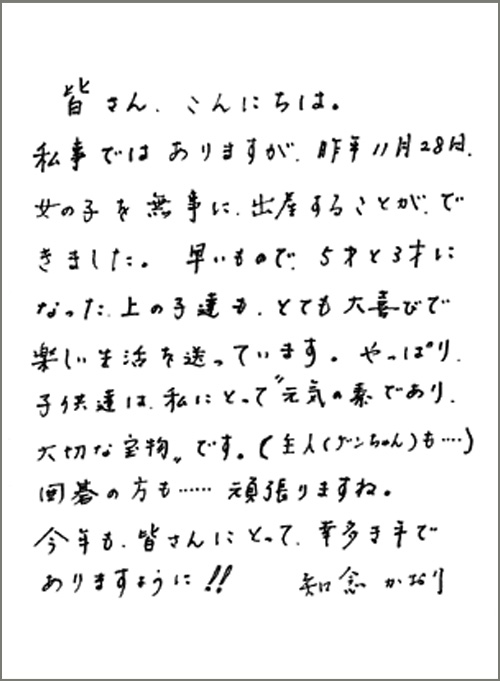 皆さん、こんにちは。
私事ではありますが、昨年11月28日、
女の子を無事に、出産することが、で
きました。早いもので、5才と3才に
なった、上の子達も、とても大喜びで
楽しい生活を送っています。やっぱり、
子供達は、私にとって〝元気の素であり、
大切な宝物〟です。(主人(ゲンちゃん)も‥‥)
囲碁の方も‥‥‥頑張りますね。
今年も、皆さんにとって、幸多き年で
ありますように!! 知念かおり